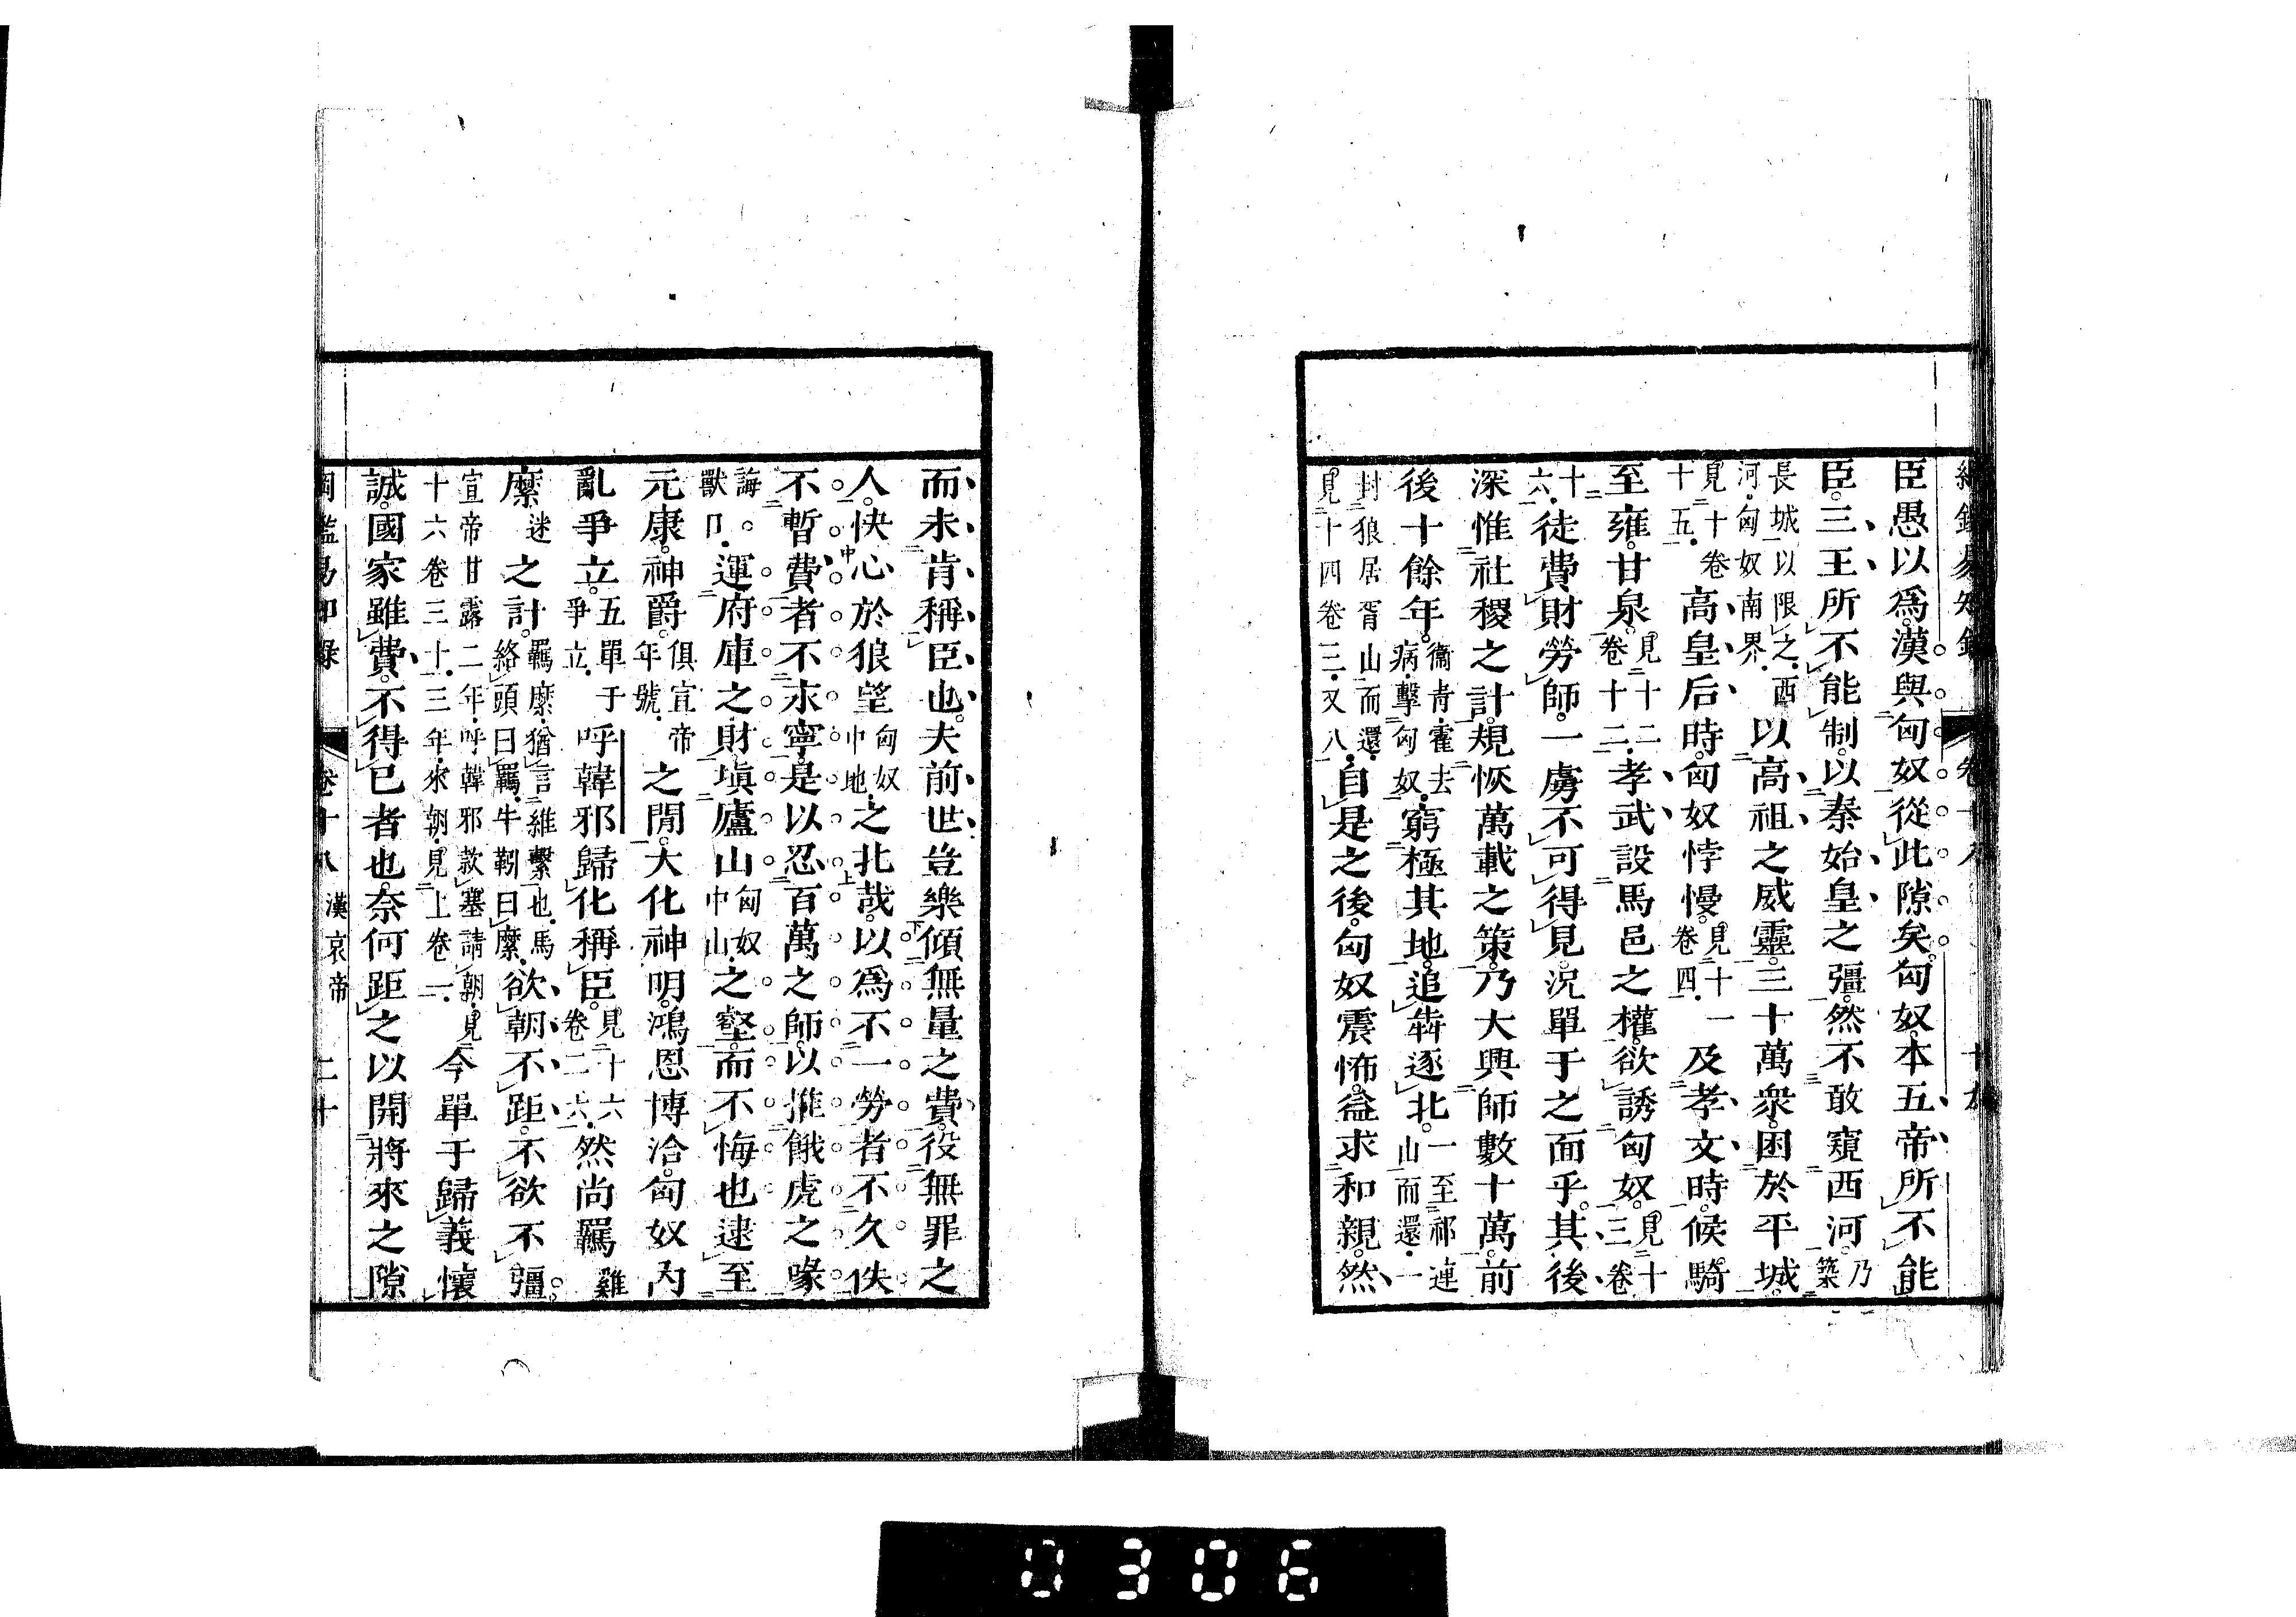 臣愚以爲漢與匈奴從此隙矣匈奴本五帝所不能
臣三王所不能制以秦始皇之彊然不敢窺西河乃築
長城以限之西河匈奴南界以高祖之威靈三十萬衆困於平城
見十卷十五高皇后時匈奴悖慢見十一卷四及孝文時候騎
至雍甘泉見十二卷十二孝武設馬邑之權欲誘匈奴見十三卷
十六徒費財勞師一虜不可得見況單于之面乎其後
深惟社稷之計規恢萬載之策乃大興師數十萬前
後十餘年衞青霍去病擊匈奴窮極其地追犇逐北一至祁連山而還一
封狼居胥山而還見十四卷三又八自是之後匈奴震怖益求和親然
而未肯稱臣也夫前世豈樂傾無量之費役無罪之
人快心於狼望匈奴中地之北哉以爲不一勞者不久佚
不暫費者不永寧是以忍百萬之師以摧餓虎之喙
誨獸口運府庫之財塡廬山匈奴中山之壑而不悔也逮至
元康神爵俱宣帝年號之閒大化神明鴻恩博洽匈奴内
亂爭立五單于爭立呼韓邪歸化稱臣見十六卷二六然尚羈雞
縻迷之計羈縻猶言維繫也馬絡頭曰羈牛靷曰縻欲朝不距不欲不彊
宣帝甘露二年呼韓邪款塞請朝見十六卷三十三年來朝見上卷一今單于歸義懷
誠國家雖費不得已者也奈何距之以開將來之隙
卷十八 漢哀帝 二十